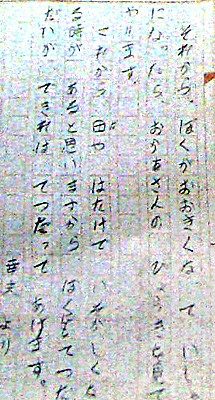 それから、ぼくがおおきくなっていしゃ
になったら おかあさんの びょうきを見て
やります。
これから 田や はたけで いそがしくな
る時が あると思いますから ぼくもてつだ
だいが できれば てつだって あげます。
幸夫 より